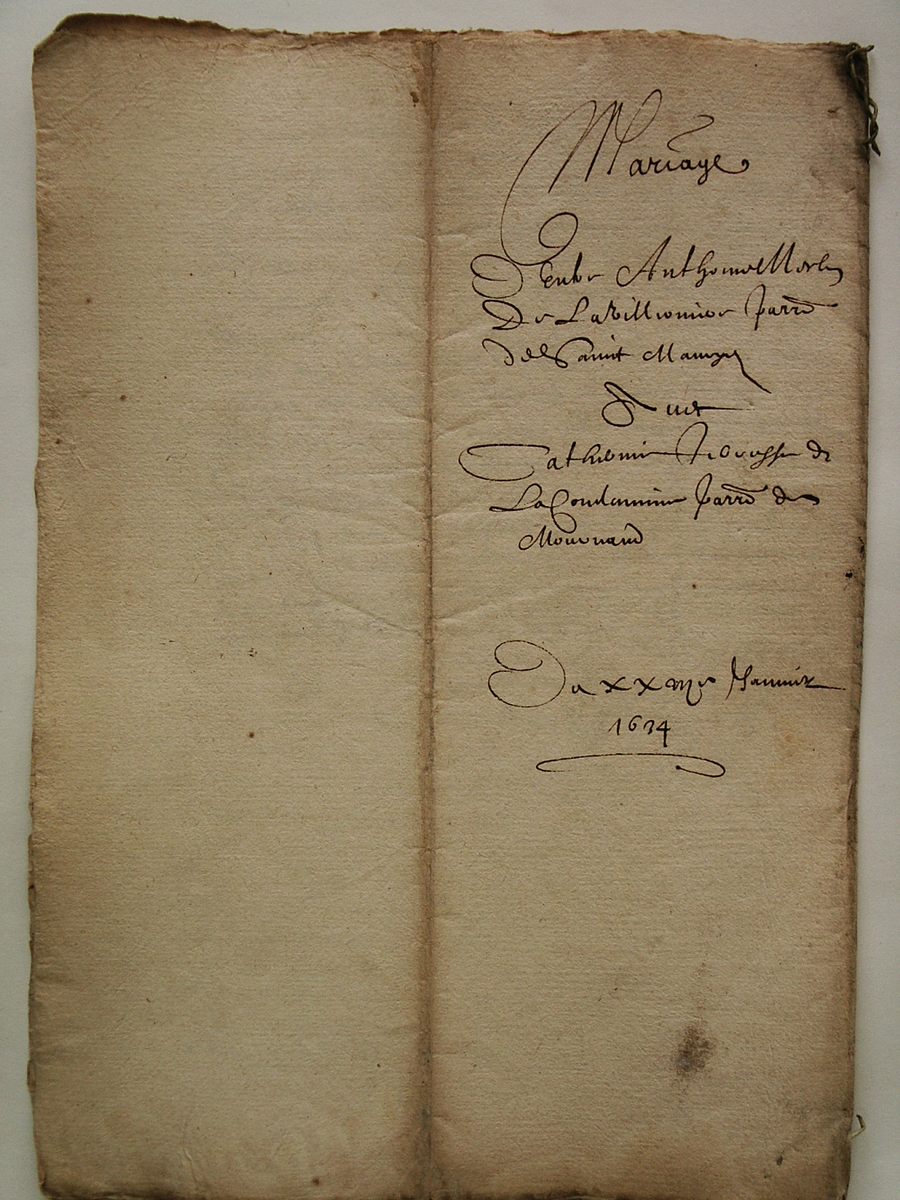 Mariage
D'entre Anthoine Morlin
De La Villionniere parr
de Saint Maurize
Avec
Catherine de
La Condamine parr de
Mournand
Du xx Janvier
1634